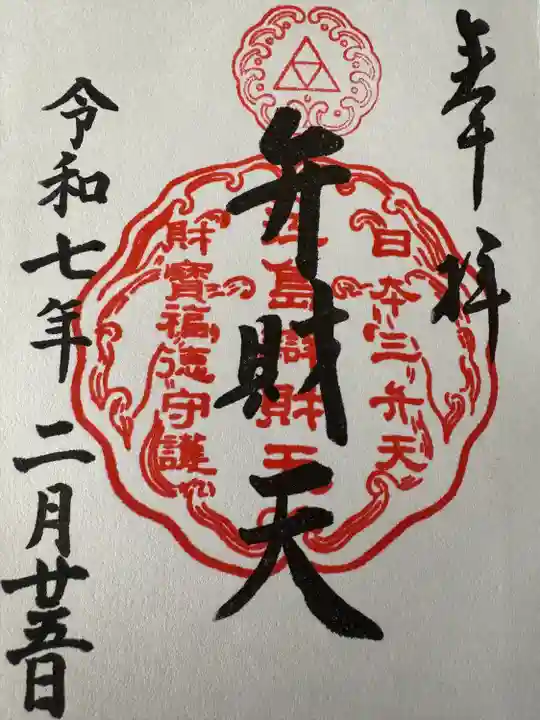 奉拝
日本三弁天
弁財天
島
財宝
財寶福徳守護
令和七年 二月廿五日